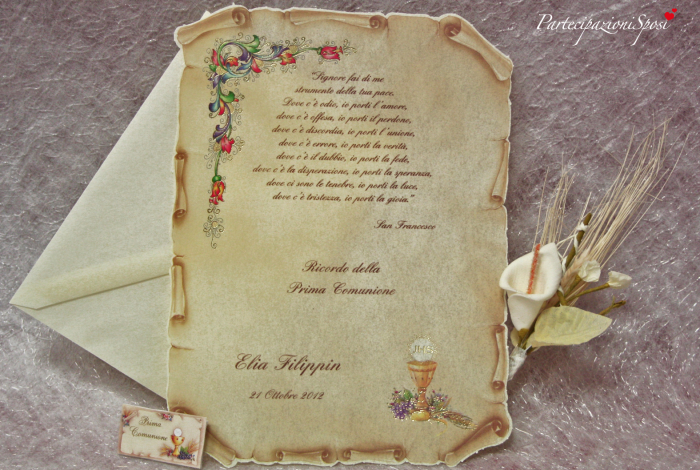 PartecipazioniSposi
"Signore fai di me
strumento della tua pace,
Dove c'è odio, io porti l'amore,
dove c'è offesa, io porti il perdono,
dove c'è discordia, io porti l'unione,
dove c'è errore, io porti la verità,
dove c'è il dubbio, io porti la fede,
dove c'è la disperazione, io porti la speranza,
dove ci sono le tenebre, io porti la luce,
dove c'è tristezza, io porti la gioia."
San Francesco
Ricordo della
Prima Comunione
Elia Filippin
21 Ottobre 2012
Buona
Comunione